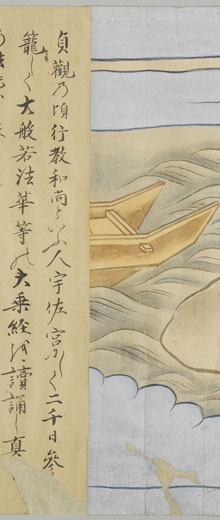 貞觀乃頃行教和尚といふ人宇佐宮尓て二千日參
籠して大般若法華等の大乗経を讀誦し真